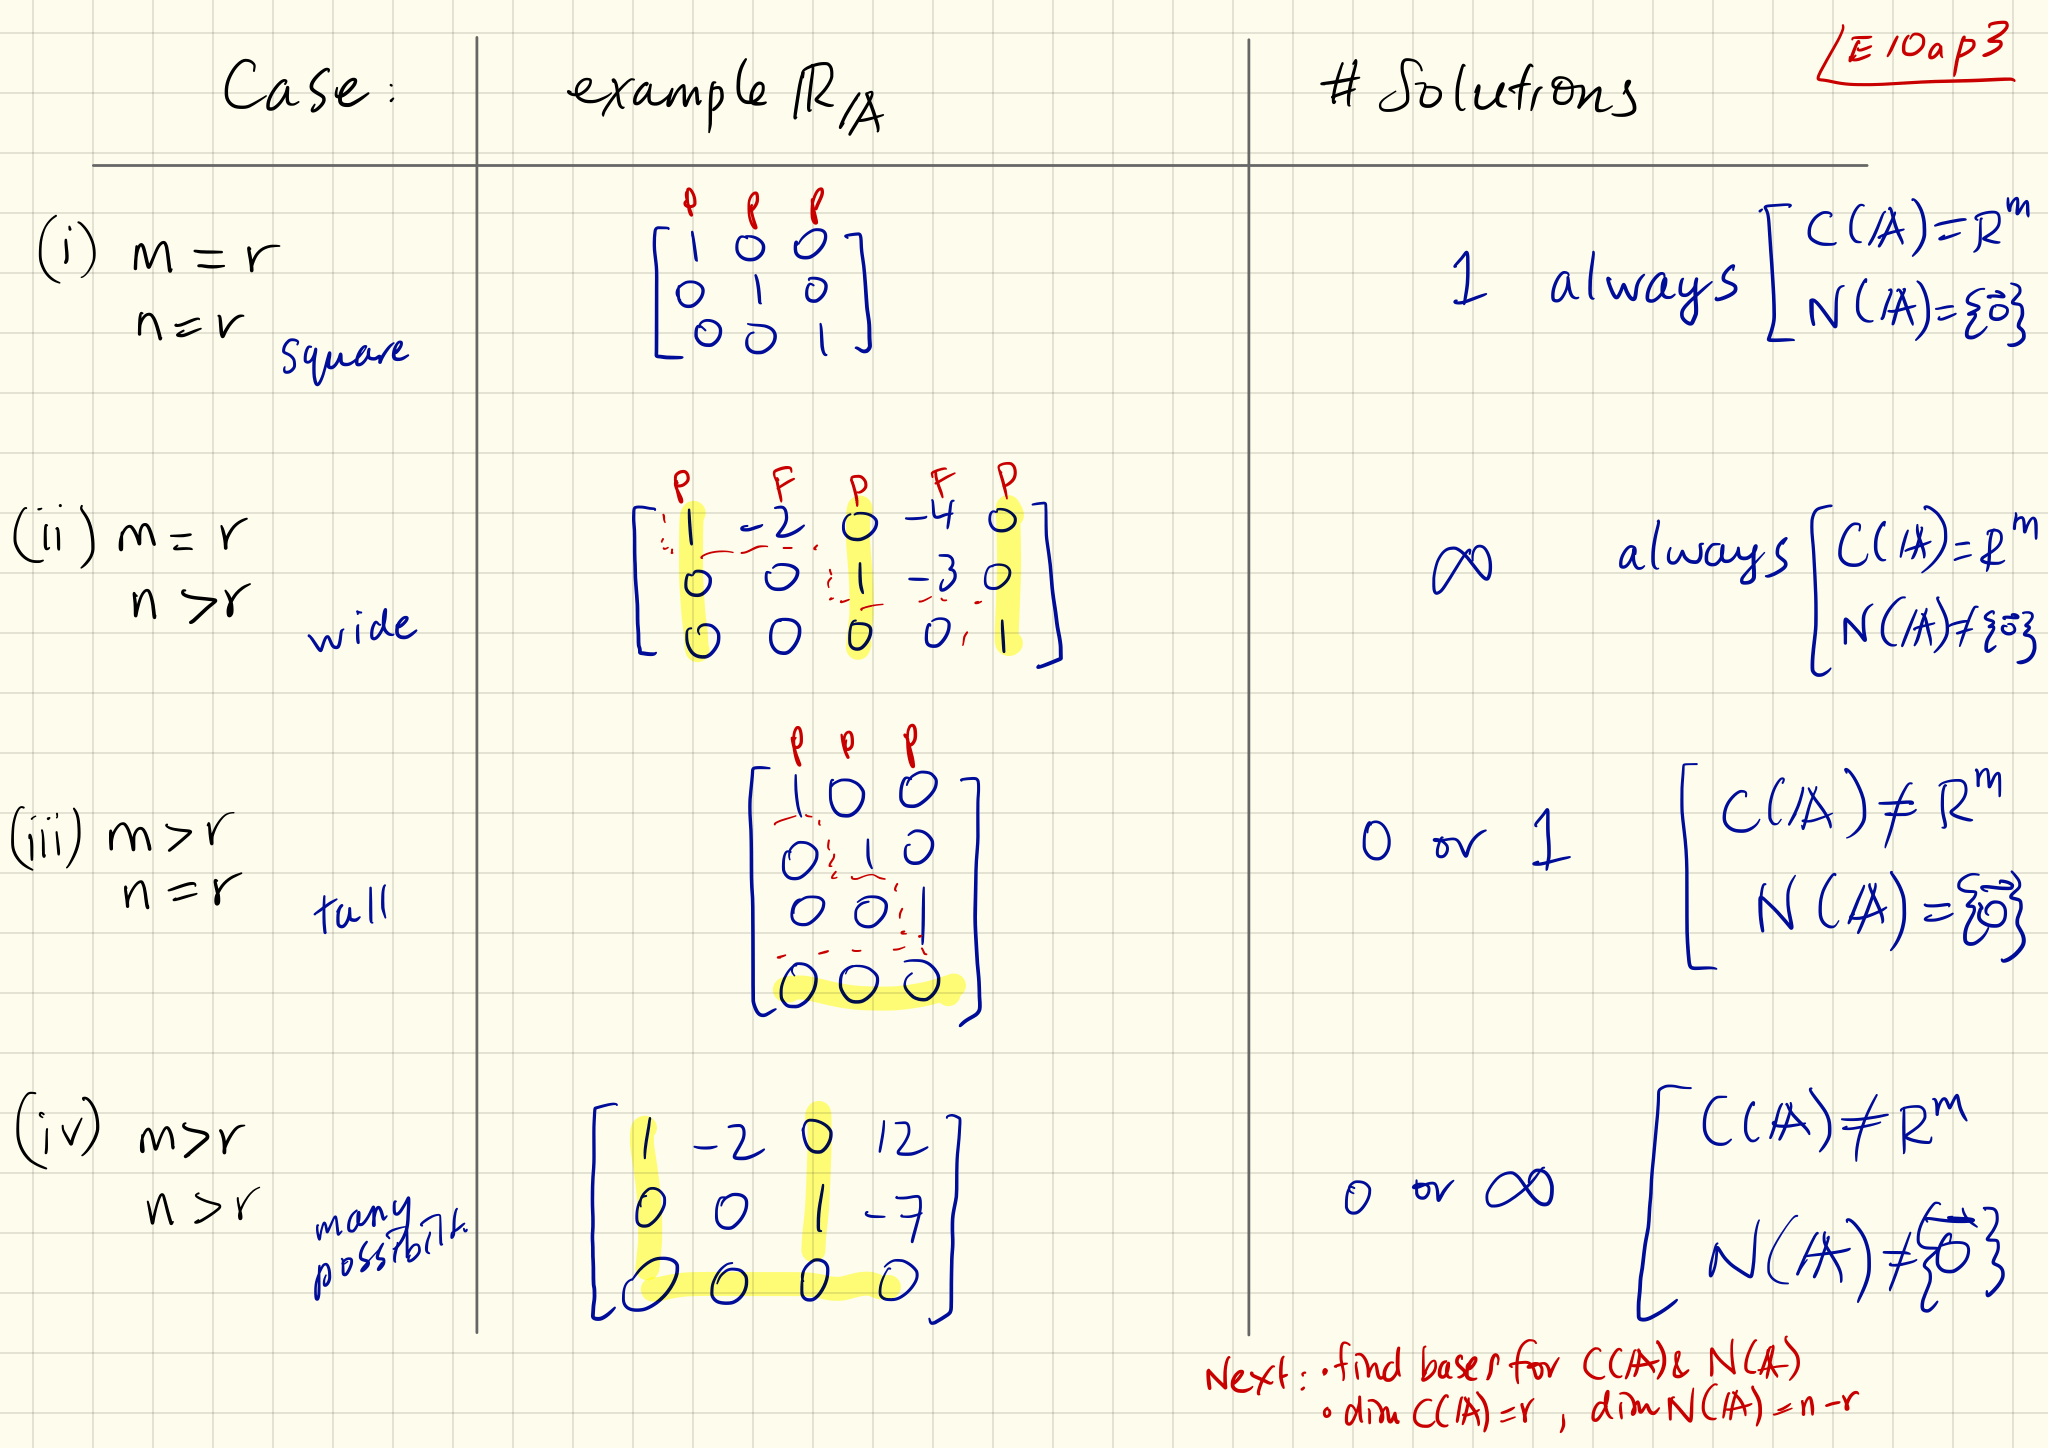 E10ap3
Case: example R_A # Solutions
P P P
(i) m = r
n = r
square
[ 1 0 0
0 1 0
0 0 1 ]
1 always [ C(A) = R^m
N(A) = {0⃗}
P F P F P
(ii) m = r
n > r
wide
[ 1 -2 0 -4 0
0 0 1 -3 0
0 0 0 0 1 ]
∞ always [ C(A) = R^m
N(A) ≠ {0⃗}
P P P
(iii) m > r
n = r
tall
[ 1 0 0
0 1 0
0 0 1
0 0 0 ]
0 or 1 [ C(A) ≠ R^m
N(A) = {0⃗}
(iv) m > r
n > r
many
possibilt.
[ 1 -2 0 12
0 0 1 -7
0 0 0 0 ]
0 or ∞ [ C(A) ≠ R^m
N(A) ≠ {0⃗}
Next: • find bases for C(A) & N(A)
• dim C(A) = r , dim N(A) = n - r